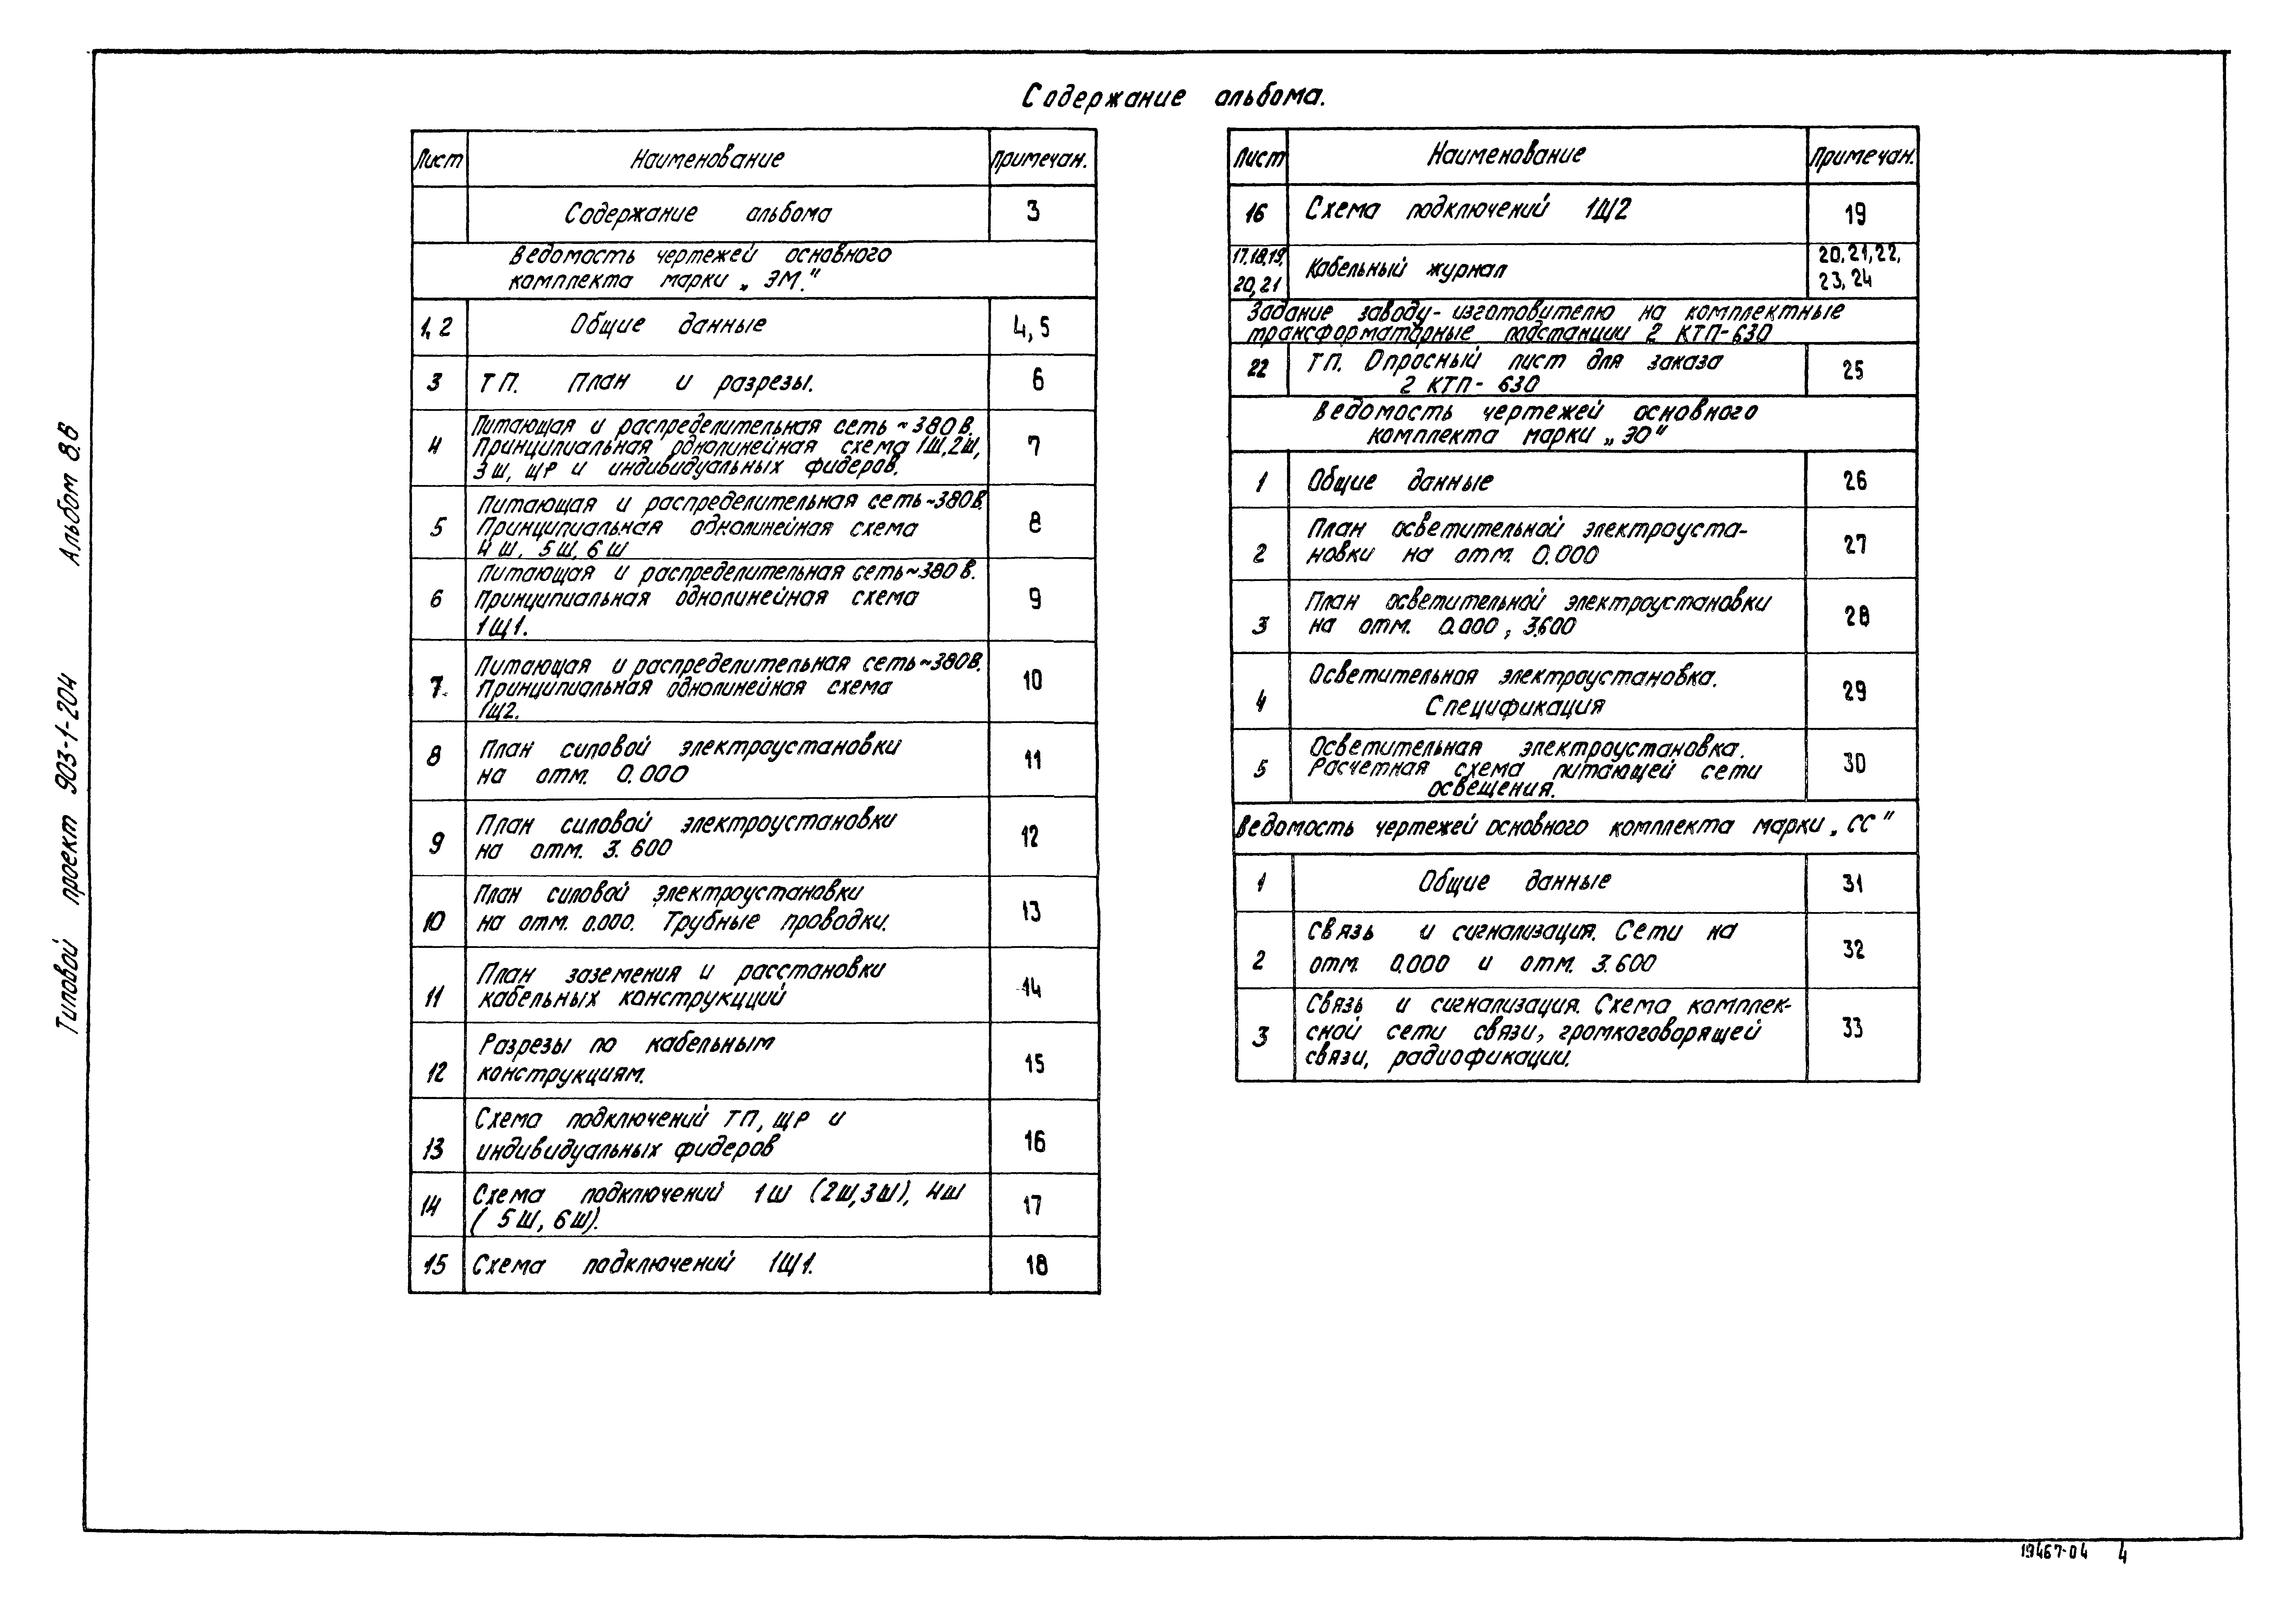 Содержание альбома.
Лист Наименование Примечан.
Содержание альбома 3
Ведомость чертежей основного
комплекта марки „ЭМ."
1,2 Общие данные 4,5
3 ТП. План и разрезы. 6
4 Питающая и распределительная сеть ~380В. 7
Принципиальная однолинейная схема 1Ш,2Ш,
3Ш, ЩР и индивидуальных фидеров.
5 Питающая и распределительная сеть ~380В. 8
Принципиальная однолинейная схема
4Ш, 5Ш, 6Ш
6 Питающая и распределительная сеть ~380В. 9
Принципиальная однолинейная схема
1Щ1.
7 Питающая и распределительная сеть ~380В. 10
Принципиальная однолинейная схема
1Щ2.
8 План силовой электроустановки 11
на отм. 0.000
9 План силовой электроустановки 12
на отм. 3.600
10 План силовой электроустановки 13
на отм. 0.000. Трубные проводки.
11 План заземения и расстановки 14
кабельных конструкций
12 Разрезы по кабельным 15
конструкциям.
13 Схема подключений ТП, ЩР и 16
индивидуальных фидеров
14 Схема подключений 1Ш (2Ш,3Ш), 4Ш 17
(5Ш, 6Ш).
15 Схема подключений 1Щ1. 18
Лист Наименование Примечан.
16 Схема подключений 1Щ2 19
17,18,19, Кабельный журнал 20,21,22,
20,21 23,24
Задание заводу-изготовителю на комплектные
трансформаторные подстанции 2 КТП-630
22 ТП. Опросный лист для заказа 25
2 КТП-630
Ведомость чертежей основного
комплекта марки „ЭО"
1 Общие данные 26
2 План осветительной электроуста- 27
новки на отм. 0.000
3 План осветительной электроустановки 28
на отм. 0.000, 3.600
4 Осветительная электроустановка. 29
Спецификация
5 Осветительная электроустановка. 30
Расчетная схема питающей сети
освещения.
Ведомость чертежей основного комплекта марки „СС"
1 Общие данные 31
2 Связь и сигнализация. Сети на 32
отм. 0.000 и отм. 3.600
3 Связь и сигнализация. Схема комплек- 33
сной сети связи, громкоговорящей
связи, радиофикации.
Типовой проект 903-1-204 Альбом 8.8
19467-04 4